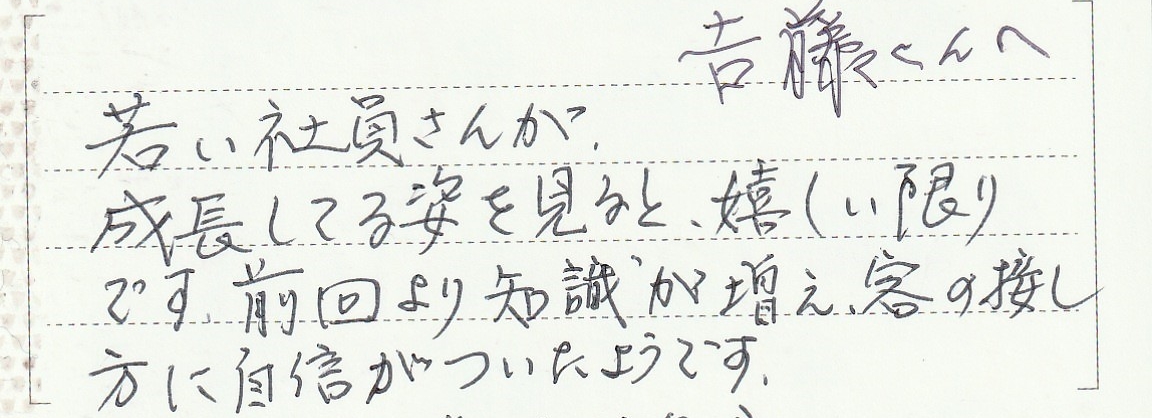 吉藤くんへ
若い社員さんが、
成長してる姿を見ると、嬉しい限り
です。前回より知識が増え、客の接し
方に自信がついたようです。